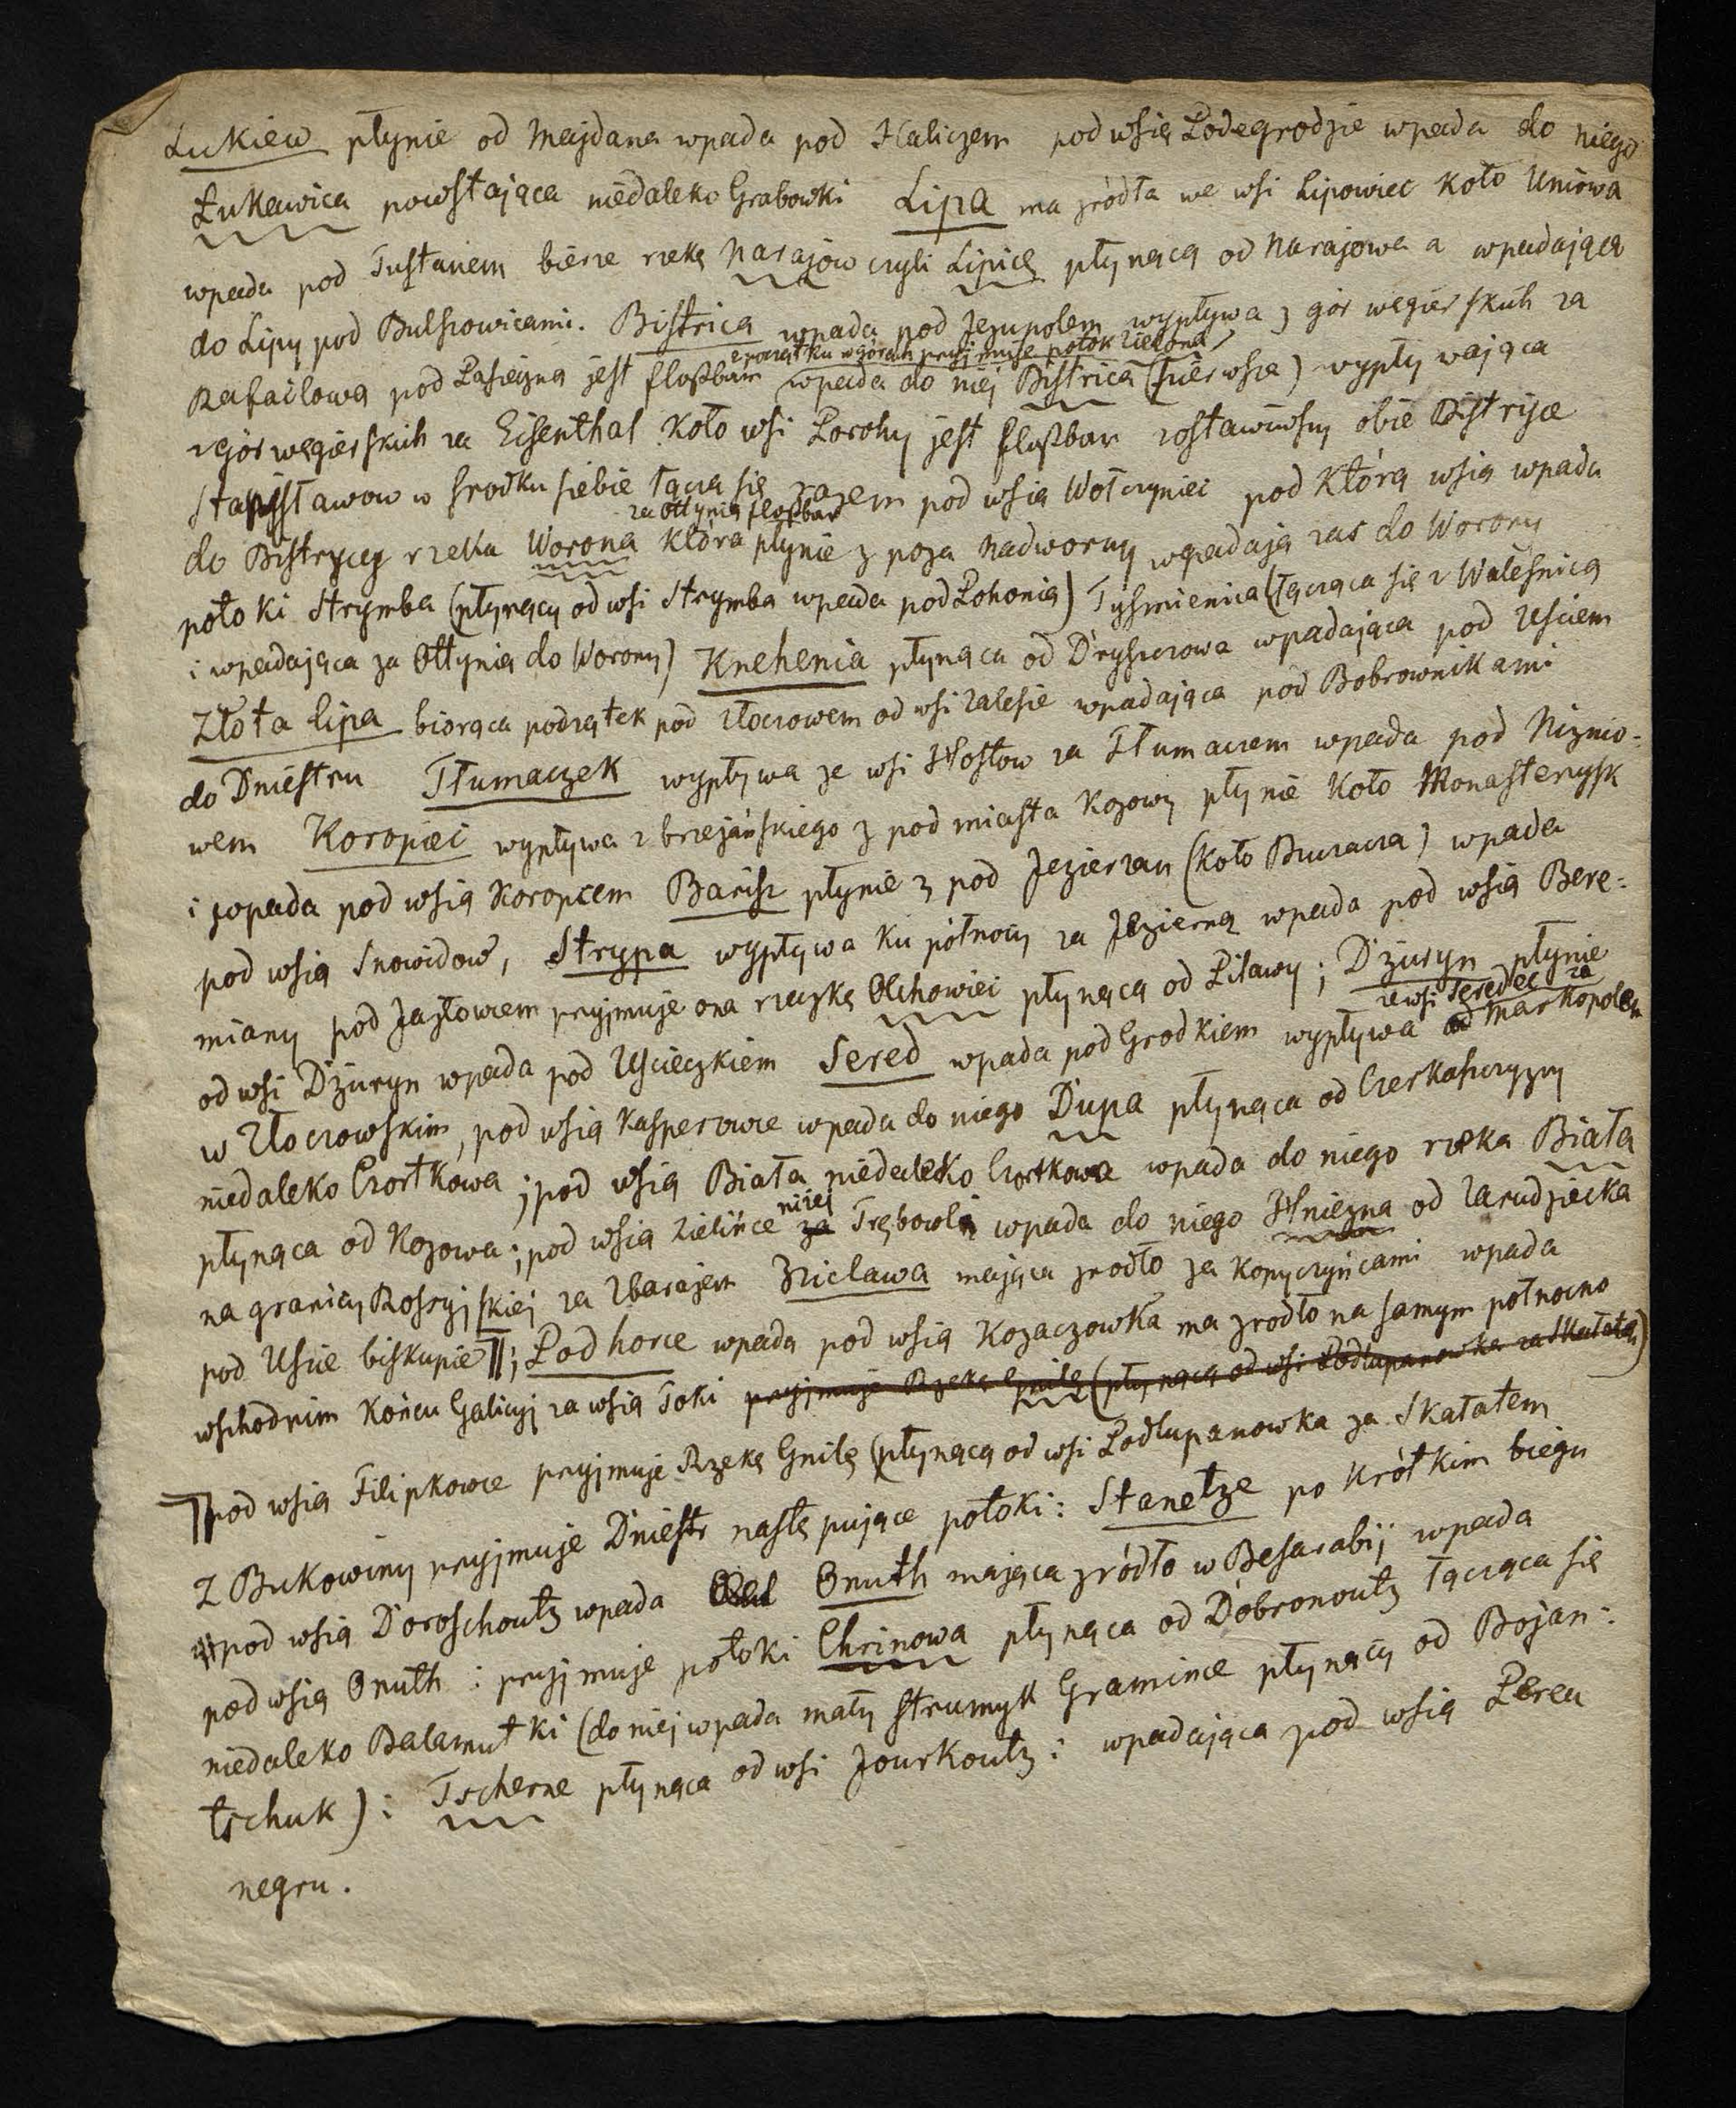 Łukiew płynie od Majdana wpada pod Haliczem pod wsią Podegrodzie wpada do niego
Łukawica powstająca niedaleko Grabowki Lipa ma zródła we wsi Lipowiec koło Uniowa
wpada pod Tustaniem bierze rzekę Narajów czyli Lipicę płynącą od Narajowa a wpadającą
do Lipy pod Bulszowicami. Bistrica wpada pod Jezupolem wypływa z gór węgierskich za
z początku w górach przyjmuje potok Zielona
Rafailową pod Pasieczną jest floßbar wpada do niej Bistrica (pierwsza) wypływająca
z gór węgierskich za Eisenthal koło wsi Porohy jest floßbar zostawiwszy obie Bistryce
Stanisławow w środku siebie łączą się razem pod wsią Wołczyniec pod którą wsią wpada
za Ottynią floßbar
do Bistrycy rzeka Worona która płynie z poza Nadworny wpadają zas do Worony
potoki Strymba (płynący od wsi Strymba wpada pod Pohonią) Tyśmienica (łącząca się z Waleśnicą
i wpadająca za Ottynią do Worony) Knehenia płynąca od Dryszczowa wpadająca pod Usciem
Złota lipa biorąca początek pod Złoczowem od wsi Zalesie wpadająca pod Bobrownikami
do Dniestru Tłumaczek wypływa ze wsi Hostow za Tłumaczem wpada pod Niznio=
wem Koropiec wypływa z brzeżańskiego z pod miasta Kozowy płynie koło Monasterzysk
i wpada pod wsią Koropcem Barisz płynie z pod Jezierzan (koło Buczacza) wpada
pod wsią Snowidow, Strypa wypływa ku północy za Jezierną wpada pod wsią Bere=
miany pod Jazłowcem przyjmuje ona rzeczkę Olchowiec płynącą od Pilawy; Dżuryn płynie
ze wsi Seredec za
od wsi Dżuryn wpada pod Uścieczkiem Sered wpada pod Grodkiem wypływa od Markopolem
w Złoczowskim, pod wsią Kasperowce wpada do niego Dupa płynąca od Czerkaszczyzny
niedaleko Czortkowa; pod wsią Biała niedaleko Czortkowa wpada do niego rzeka Biała
niżej
płynąca od Kozowa; pod wsią Zielińce za Trębowlą wpada do niego Hniezna od Zarudziecka
na granicy Rossyjskiej za Zbarażem Nicława mająca zrodło za Kopyczyńcami wpada
pod Uście biskupie ¶; Podhorce wpada pod wsią Kozaczowka ma zrodło na samym północno
wschodnim końcu Galicyj za wsią Toki przyjmuje Rzekę Gniłę (płynącą od wsi Podlupanowka za Skałatem)
¶ pod wsią Filipkowce przyjmuje Rzekę Gniłę (płynącą od wsi Podlupanowka za Skałatem
Z Bukowiny przyjmuje Dniestr następujące potoki: Stanetze po krótkim biegu
pod wsią Doroschoutz wpada Onuth mająca zródło w Besarabij wpada
pod wsią Onuth: przyjmuje potoki Chrinowa płynąca od Dobronoutz łącząca się
niedaleko Balamutki (do niej wpada mały strumyk Gramince płynący od Bojan=
tschuk): Tscherne płynąca od wsi Jourkoutz: wpadająca pod wsią Pereu
negru.